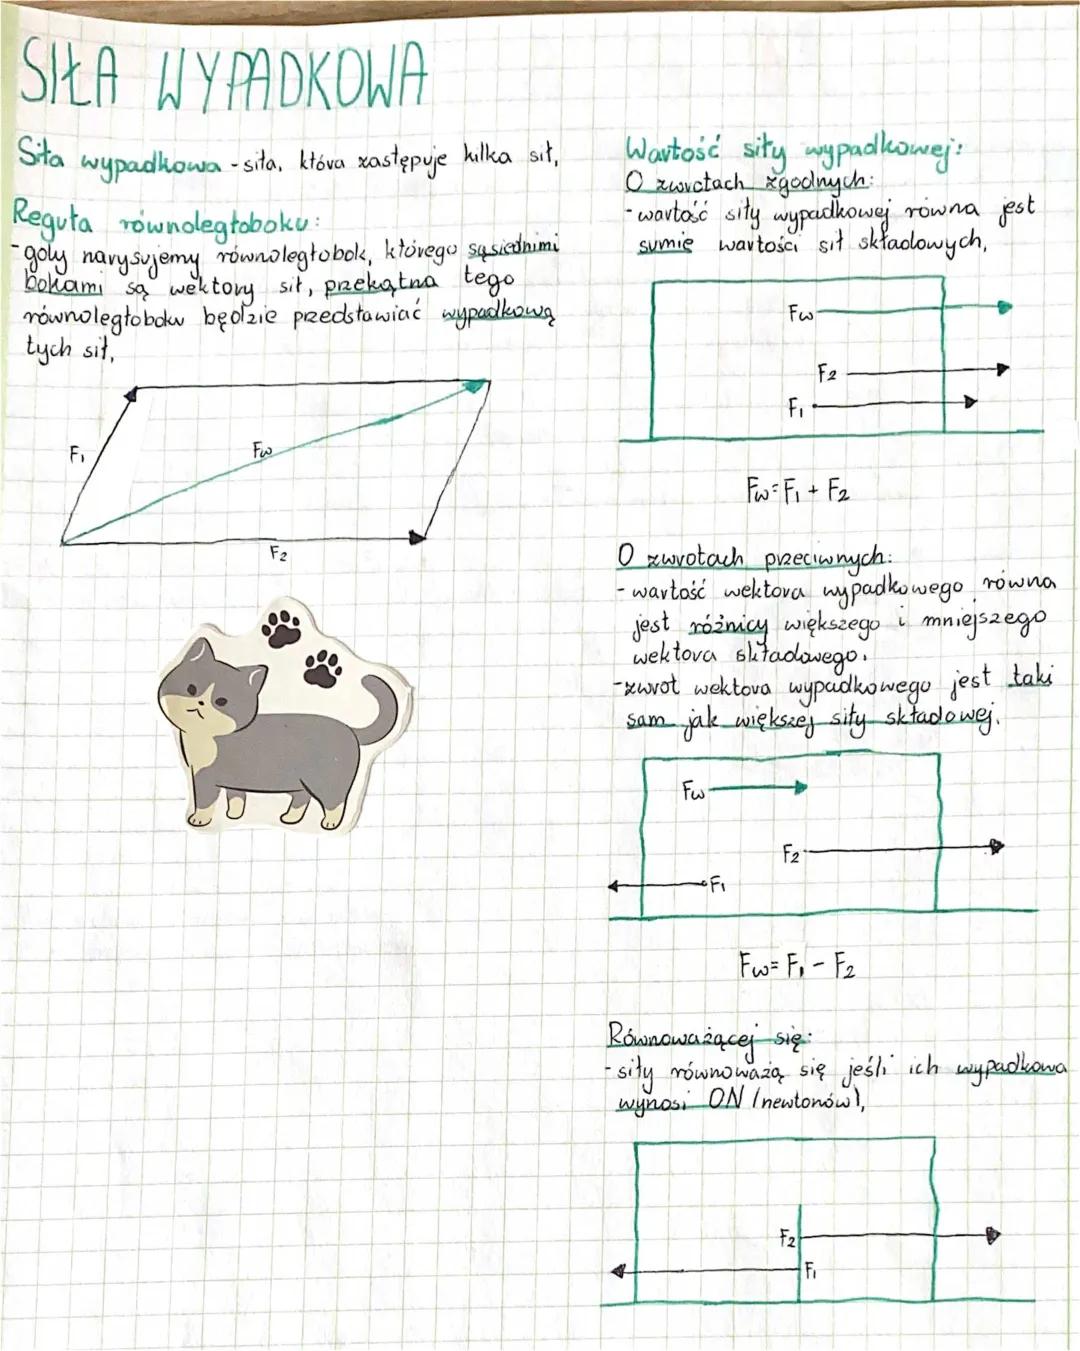 SIŁA WYPADKOWA
Siła wypadkowa - siła, która zastępuje kilka sił,
Reguła równoległoboku:
- gdy narysujemy równoległobok, którego sąsiednimi
bokami są wektory sił, przekątna tego
równoległoboku będzie przedstawiać wypadkową
tych sił,
F1
Fw
F2
Wartość siły wypadkowej:
O zwrotach zgodnych:
- wartość siły wypadkowej równa jest
sumie wartości sił składowych,
Fw
F2
F1
Fw = F1 + F2
O zwrotach przeciwnych:
- wartość wektora wypadkowego równa
jest różnicy większego i mniejszego
wektora składowego.
- zwrot wektora wypadkowego jest taki
sam jak większej siły składowej.
Fw
F2
F1
Fw = F1 - F2
Równoważącej się:
- siły równoważą się jeśli ich wypadkowa
wynosi 0N (newtonów),
F2
F1